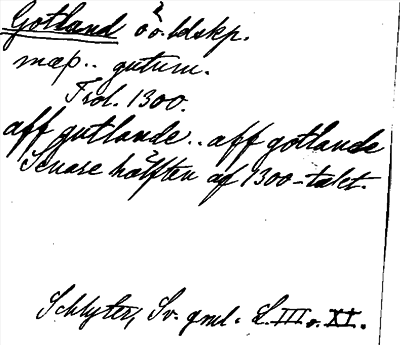 Gotland ö o. ldskp.
mæþ.. gutum.
Trol. 1300.
aff gutlande.. aff gotlande
Senare hälften af 1300-talet.
Schlyter, Sv. gml. L. III o. XI.